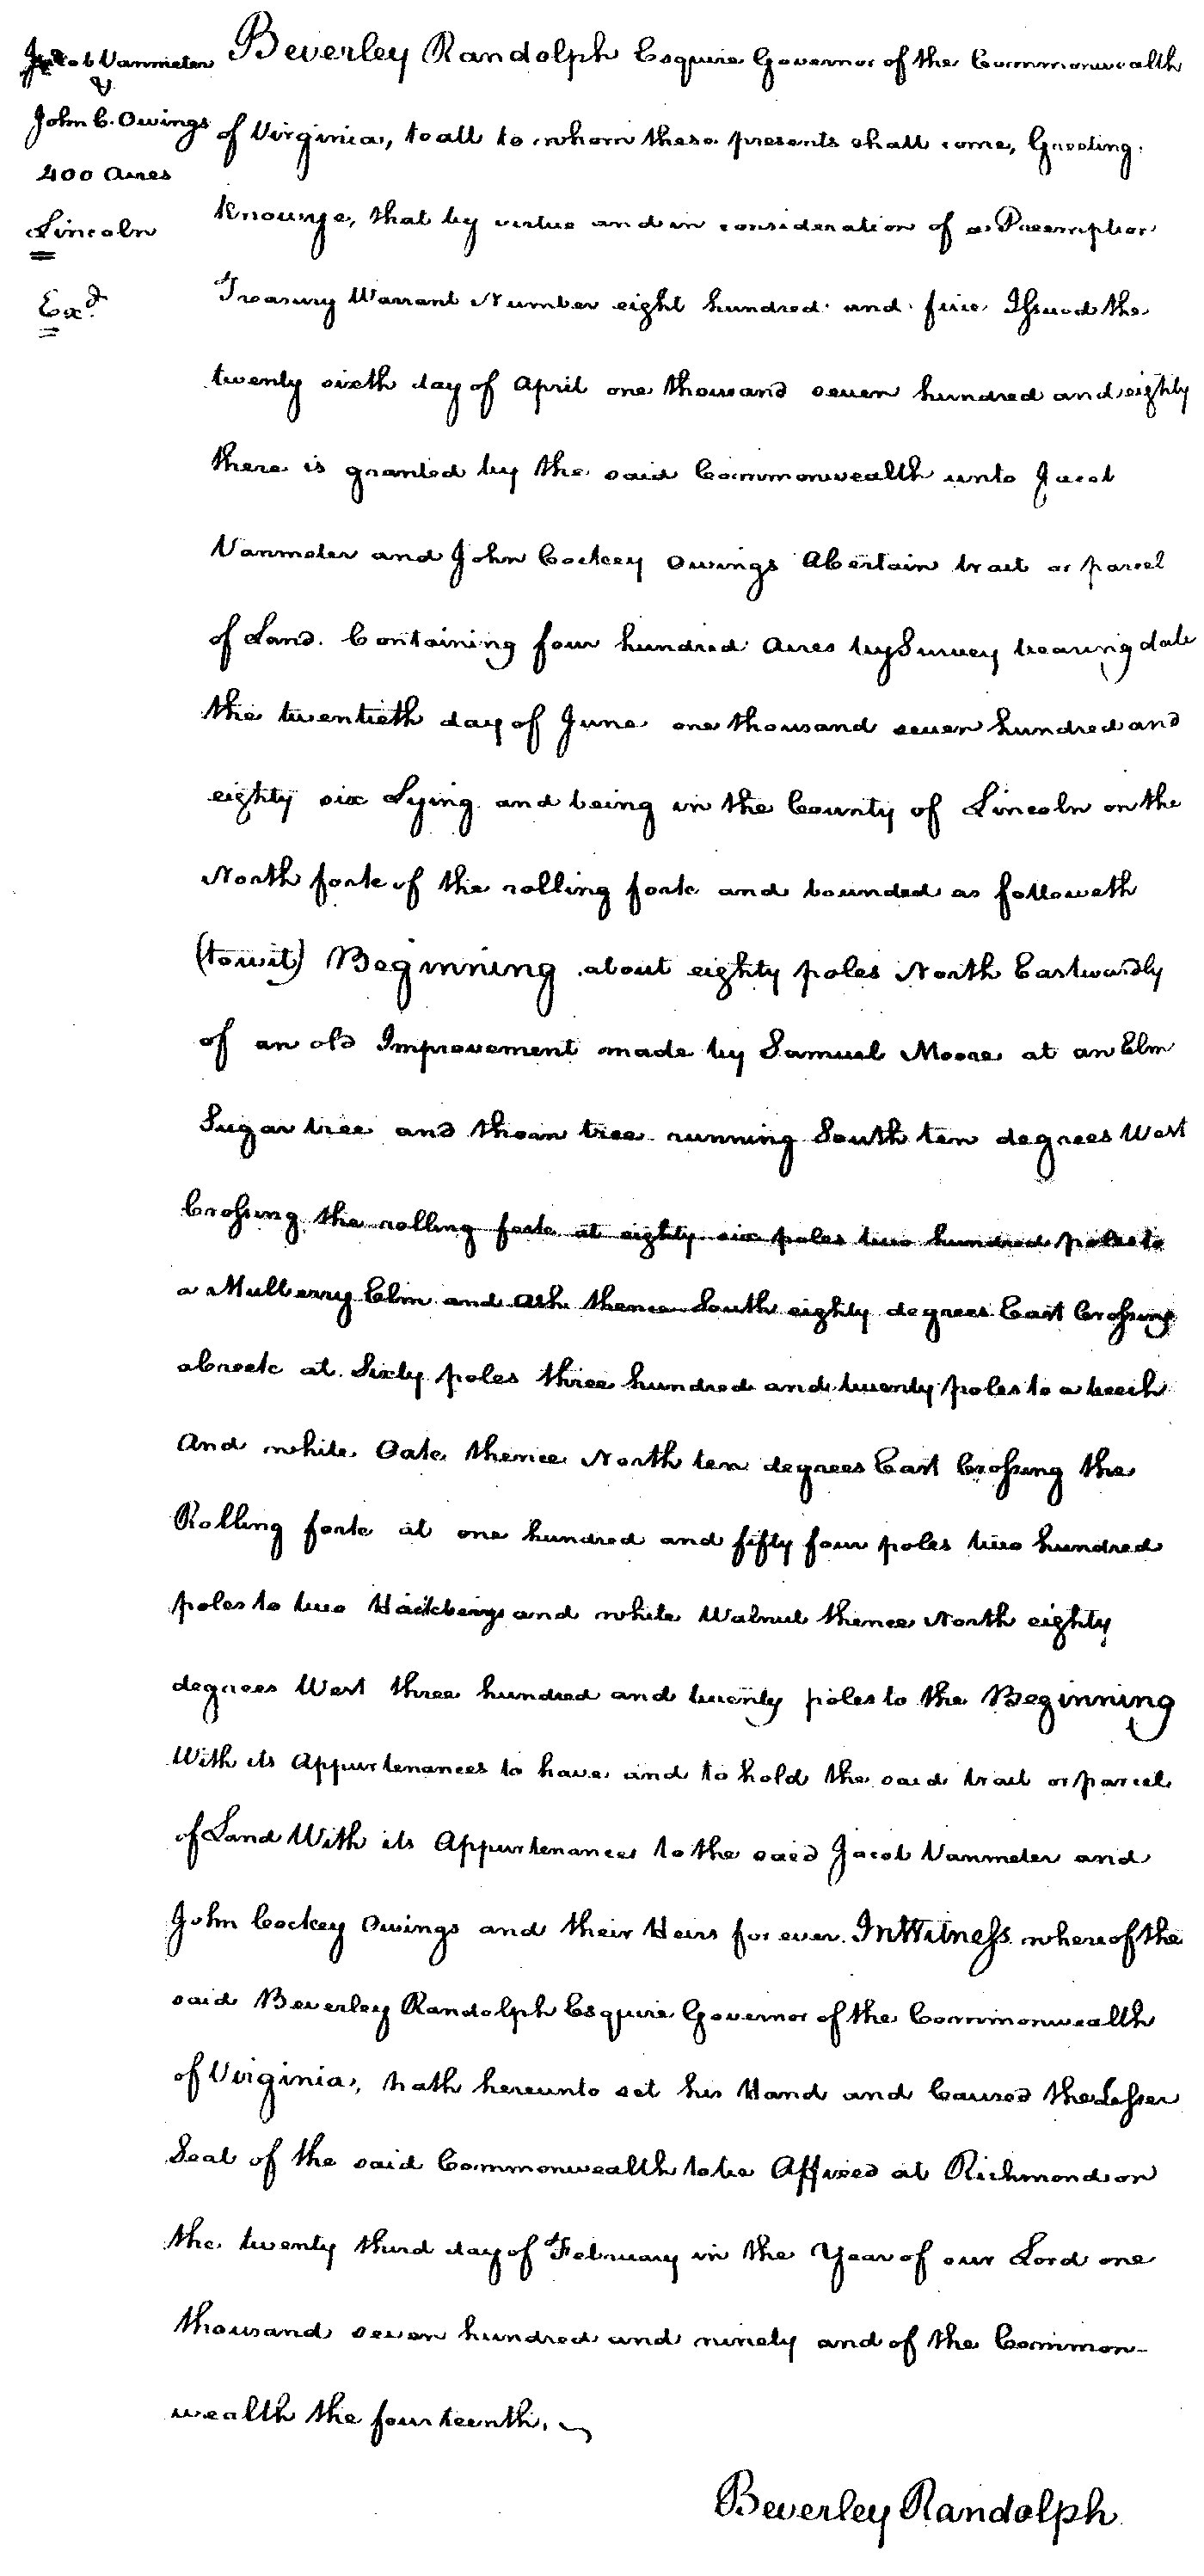 Jacob Vanmeter
&
John C. Owings
400 Acres
Lincoln
Exd.
Beverley Randolph Esquire Governor of the Commonwealth
of Virginia, to all to whom these presents shall come, Greeting.
Know ye, that by virtue and in consideration of a Preemption
Treasury Warrant Number eight hundred and five Issued the
twenty sixth day of April one thousand seven hundred and eighty
there is granted by the said Commonwealth unto Jacob
Vanmeter and John Cockey Owings A Certain tract or parcel
of Land. Containing four hundred Acres by Survey bearing date
the twentieth day of June one thousand seven hundred and
eighty six Lying and being in the County of Lincoln on the
North fork of the rolling fork and bounded as followeth
(towit) Beginning about eighty poles North Eastwardly
of an old Improvement made by Samuel Moore at an Elm
Sugar tree and thorn tree running South ten degrees West
Crossing the rolling fork at eighty six poles two hundred poles to
a Mulberry Elm and Ash thence South eighty degrees East Crossing
a Creek at Sixty poles three hundred and twenty poles to a beech
And white Oak thence North ten degrees East Crossing the
Rolling fork at one hundred and fifty four poles two hundred
poles to two Hackberrys and white Walnut thence North eighty
degrees West three hundred and twenty poles to the Beginning
With its Appurtenances to have and to hold the said tract or parcel
of Land With its Appurtenances to the said Jacob Vanmeter and
John Cockey Owings and their Heirs for ever. In Witness whereof the
said Beverley Randolph Esquire Governor of the Commonwealth
of Virginia, hath hereunto set his Hand and Caused the Lesser
Seal of the said Commonwealth to be Affixed at Richmond on
the twenty third day of February in the Year of our Lord one
thousand seven hundred and ninety and of the Common-
wealth the fourteenth.
Beverley Randolph